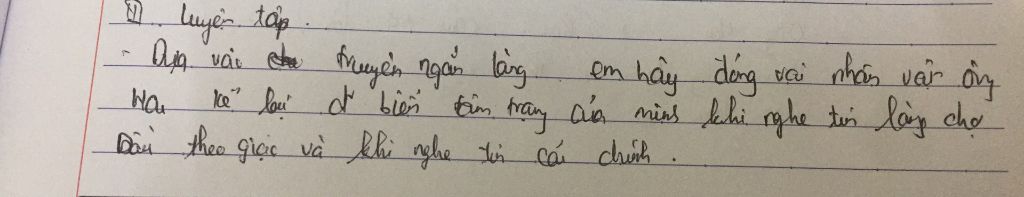 IV. Luyện tập.
- Dựa vào truyện ngắn làng em hãy đóng vai nhân vật ông
Hai kể lại d biến tâm trạng của mình khi nghe tin làng chợ
Dầu theo giặc và khi nghe tin cải chính.